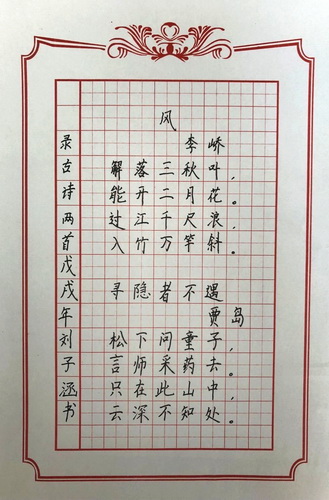 风
李峤
解落三秋叶，
能开二月花。
过江千尺浪，
入竹万竿斜。
寻隐者不遇
贾岛
松下问童子，
言师采药去。
只在此山中，
云深不知处。
录古诗两首戊戌年刘子涵书